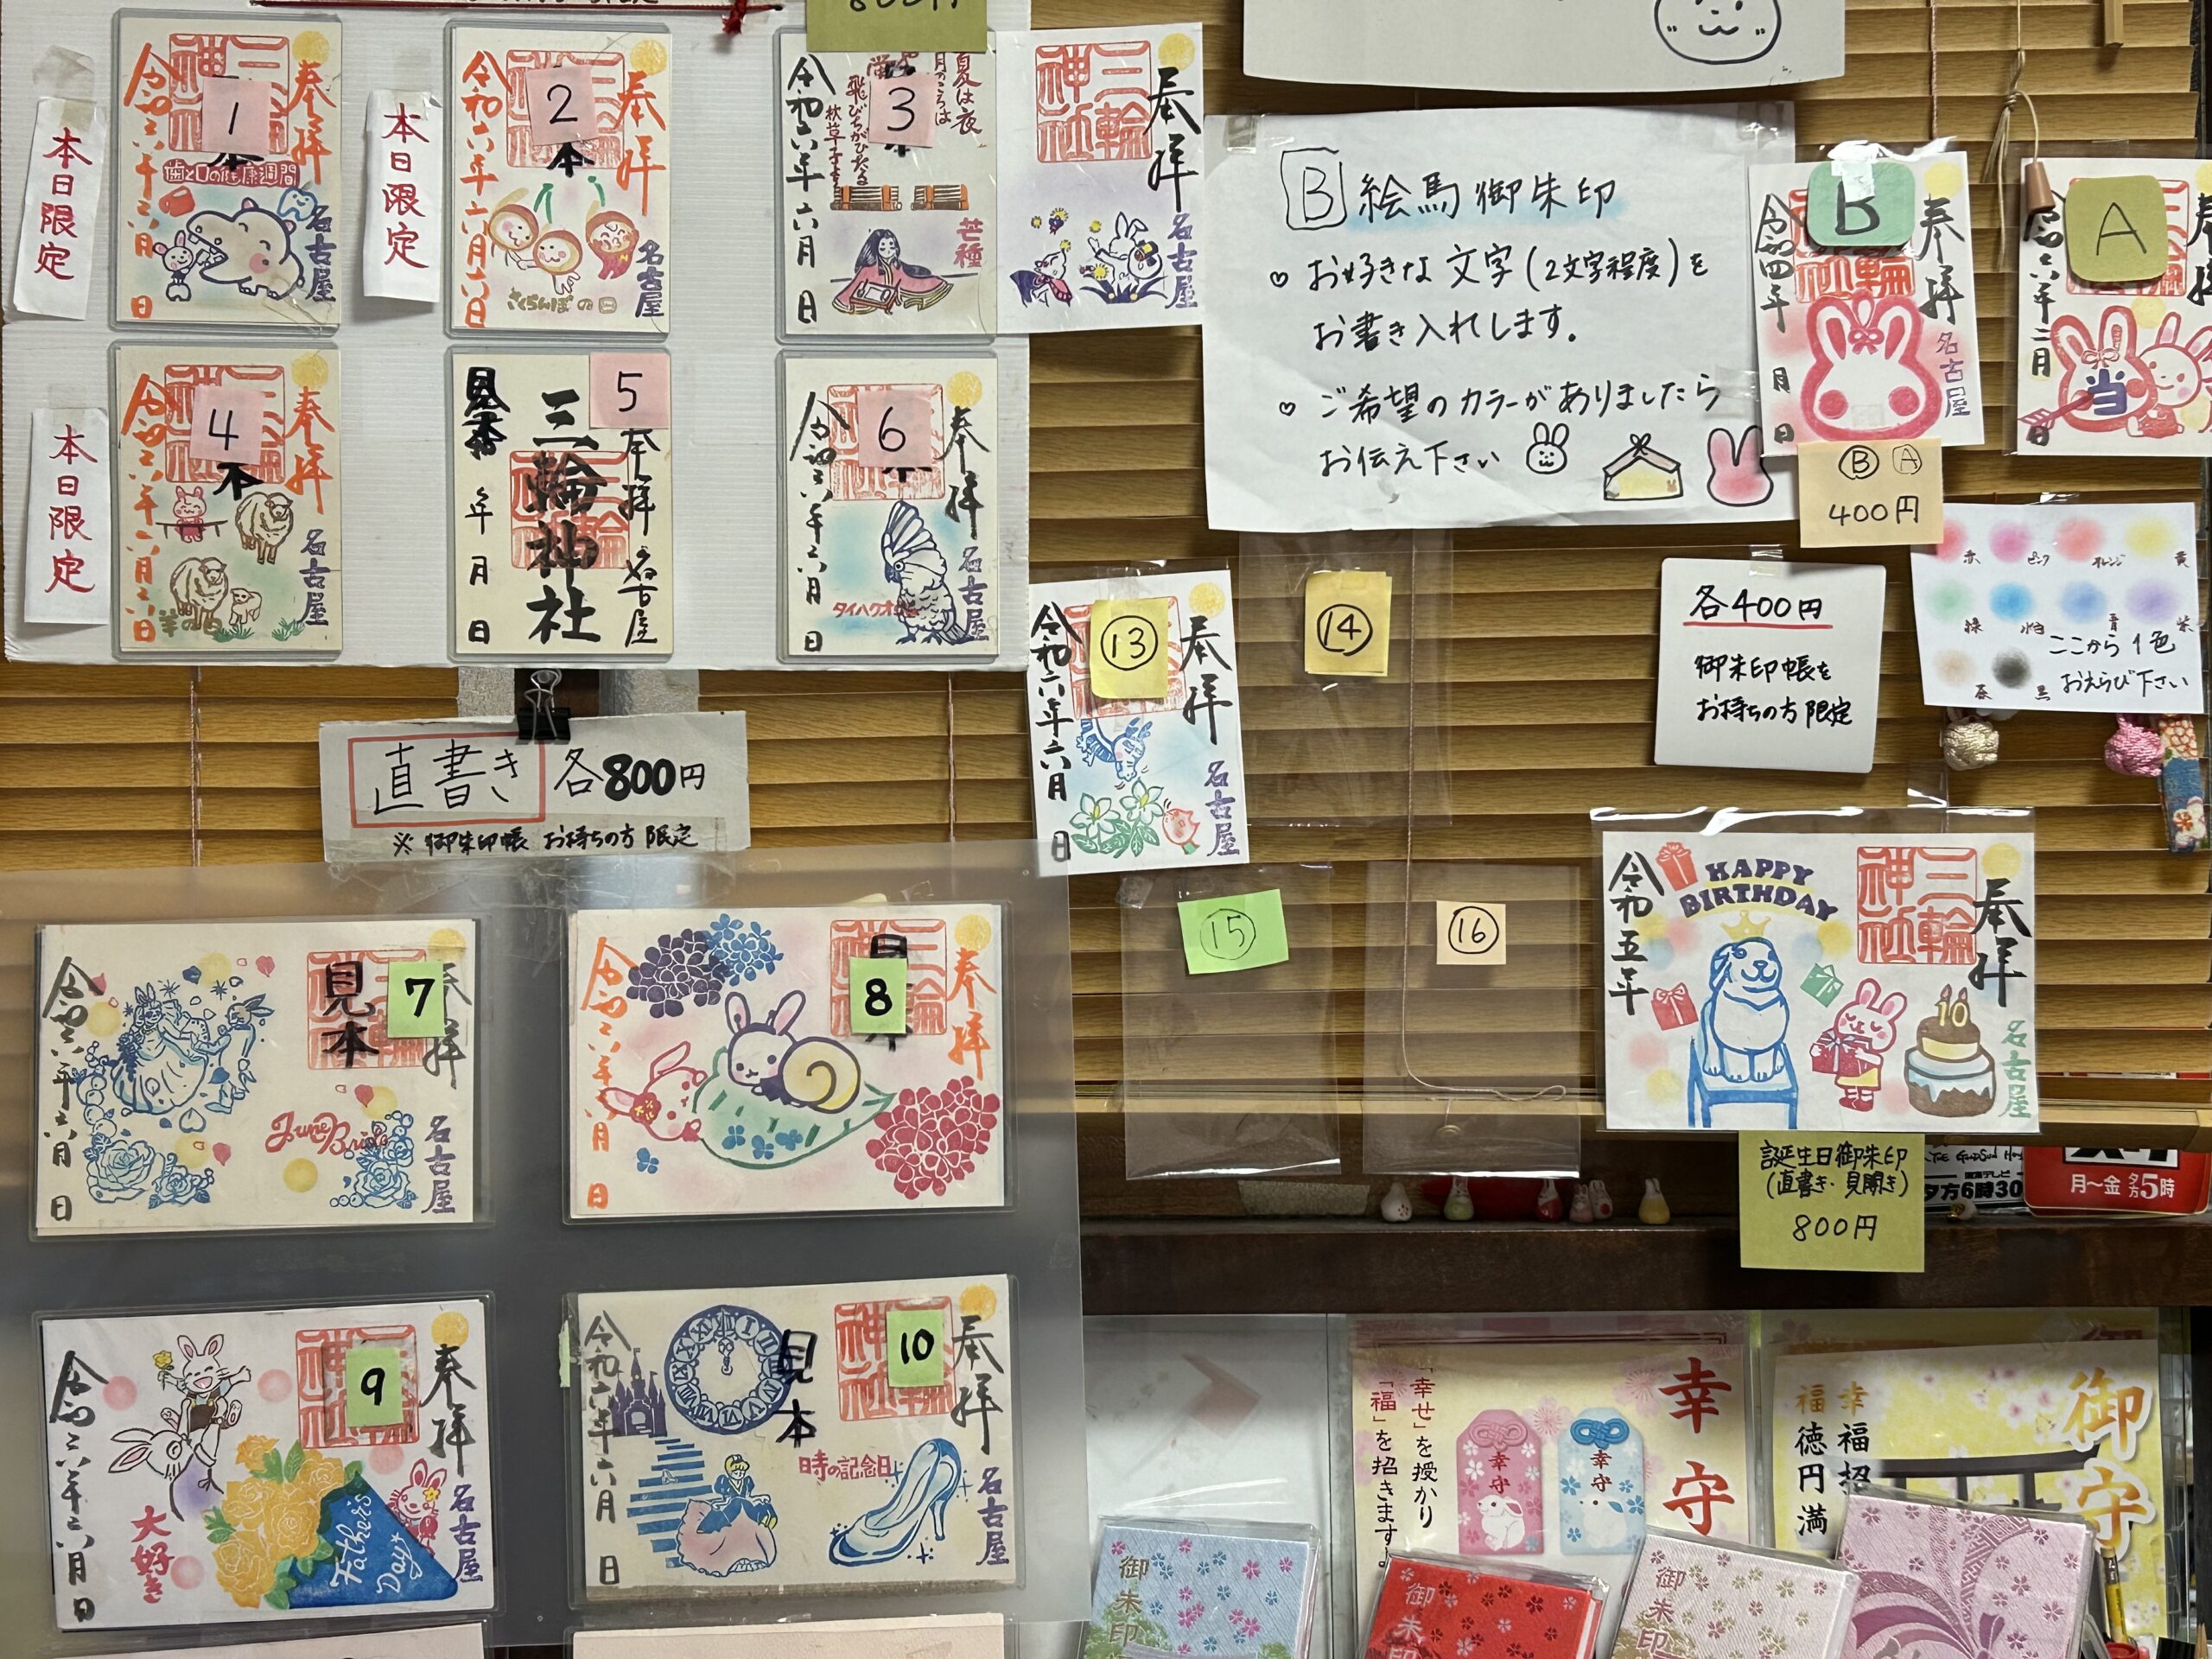 800円
本日限定
奉拝
1
歯と口の健康週間
名古屋
日
本日限定
奉拝
2
三輪神社
令和六年六月六日
さくらんぼの日
名古屋
夏は夜
月のころは
飛びちがひたる
枕草子
3
令和六年六月 日
芒種
奉拝
三輪神社
名古屋
本日限定
奉拝
4
名古屋
見本
5
奉拝
三輪神社
名古屋
年 月 日
奉拝
6
タイハクオ
名古屋
日
直書き 各800円
※御朱印帳 お持ちの方 限定
B 絵馬御朱印
♡ お好きな文字(2文字程度)を
お書き入れします。
♡ ご希望のカラーがありましたら
お伝え下さい
奉拝
B
名古屋
月 日
A
当
Ⓑ Ⓐ
400円
各400円
御朱印帳を
お持ちの方 限定
赤 ピンク オレンジ 黄
緑 水色 青 紫
茶 黒
ここから1色
おえらび下さい
奉拝
⑬
令和六年六月
日
名古屋
⑭
⑮
⑯
奉拝
7
見本
June Bride
名古屋
日
奉拝
8
月
日
奉拝
三輪神社
HAPPY
BIRTHDAY
令和五年
10
名古屋
誕生日御朱印
(直書き・見開き)
800円
夕方6時30
月〜金 夕方5時
奉拝
9
大好き
Father's
Day
名古屋
月
日
奉拝
10
見本
令和六年六月 日
時の記念日
名古屋
幸守
「幸せ」を授かり
「福」を招きます
幸守
幸守
御守
幸福招
福徳円満
御朱印
御朱印
御朱印